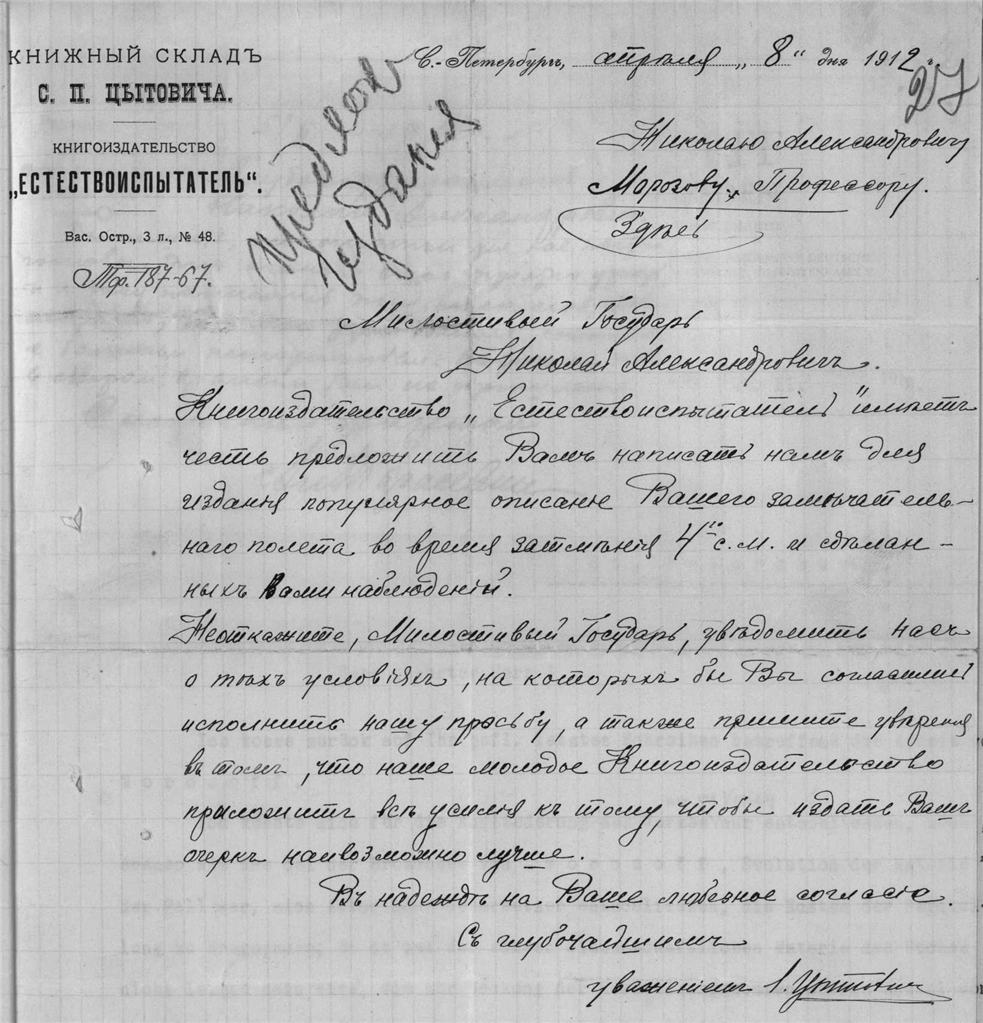 КНИЖНЫЙ СКЛАДЪ
С. П. ЦЫТОВИЧА.
КНИГОИЗДАТЕЛЬСТВО
„ЕСТЕСТВОИСПЫТАТЕЛЬ“.
Вас. Остр., 3 л., № 48.
Тф. 187-67.
С.-Петербургъ, апрѣля „ 8 “ дня 1912 г.
27
предлож.
изданія
Николаю Александровичу
Морозову, Профессору.
Здѣсь
Милостивый Государь
Николай Александровичъ.
Книгоиздательство „Естествоиспытатель“ имѣетъ
честь предложить Вамъ написать намъ для
изданія популярное описаніе Вашего замѣчатель-
наго полета во время затменія 4го с. м. и сдѣлан-
ныхъ Вами наблюденій.
Неоткажите, Милостивый Государь, увѣдомить насъ
о тѣхъ условіяхъ, на которыхъ бы Вы согласились
исполнить нашу просьбу, а также примите увѣренія
въ томъ, что наше молодое Книгоиздательство
приложитъ всѣ усилія къ тому, чтобы издать Вашъ
очеркъ наивозможно лучше.
Въ надеждѣ на Ваше любезное согласіе.
Съ глубочайшимъ
уваженіемъ С. Цытовичъ